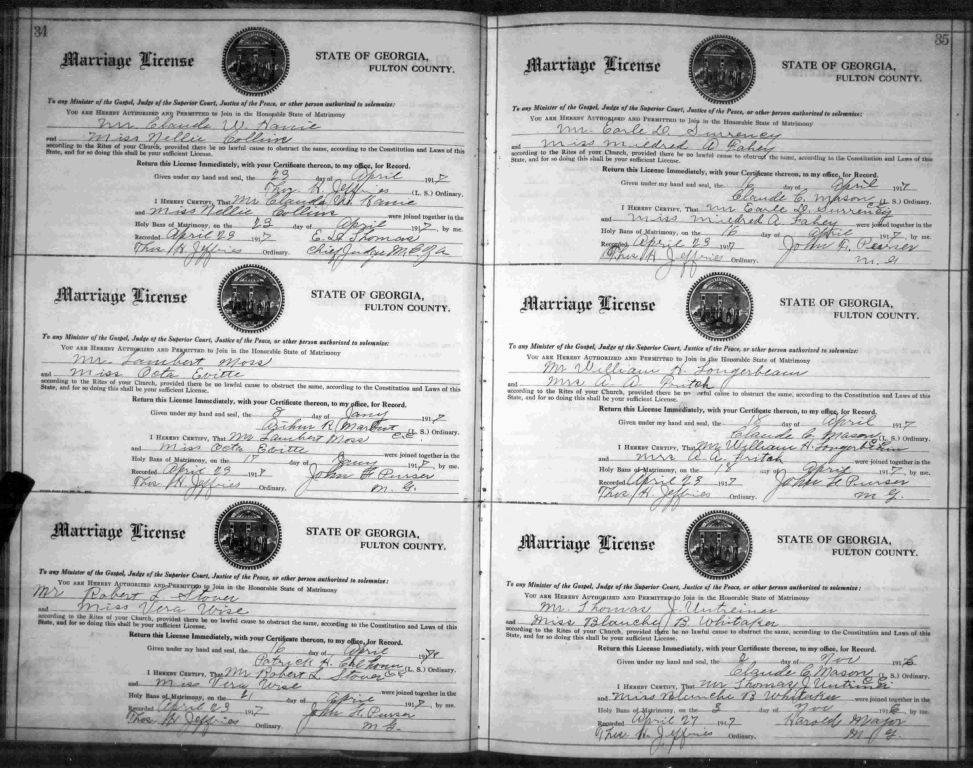 34
Marriage License
STATE OF GEORGIA,
FULTON COUNTY.
To any Minister of the Gospel, Judge of the Superior Court, Justice of the Peace, or other person authorized to solemnize:
YOU ARE HEREBY AUTHORIZED AND PERMITTED to Join in the Honorable State of Matrimony
Mr. Claude W.
and Miss Nellie Collins
according to the Rites of your Church, provided there be no lawful cause to obstruct the same, according to the Constitution and Laws of this
State, and for so doing this shall be your sufficient License.
Return this License Immediately, with your Certificate thereon, to my office, for Record.
Given under my hand and seal, the 23 day of April 1917
Thos. H. Jeffries (L. S.) Ordinary.
I HEREBY CERTIFY, That Mr Claude W.
and Miss Nellie Collins were joined together in the
Holy Bans of Matrimony, on the 23 day of April 1917, by me.
Recorded April 23 1917 E. D. Thomas
Thos. H. Jeffries Ordinary. Chief Judge M.C.
Marriage License
STATE OF GEORGIA,
FULTON COUNTY.
To any Minister of the Gospel, Judge of the Superior Court, Justice of the Peace, or other person authorized to solemnize:
YOU ARE HEREBY AUTHORIZED AND PERMITTED to Join in the Honorable State of Matrimony
Mr. Lambert Moss
and Miss Octa Evitte
according to the Rites of your Church, provided there be no lawful cause to obstruct the same, according to the Constitution and Laws of this
State, and for so doing this shall be your sufficient License.
Return this License Immediately, with your Certificate thereon, to my office, for Record.
Given under my hand and seal, the 8 day of Jany 1917
Arthur R. (L. S.) Ordinary.
I HEREBY CERTIFY, That Mr Lambert Moss
and Miss Octa Evitte were joined together in the
Holy Bans of Matrimony, on the 8 day of Jany 1917, by me.
Recorded April 23 1917 John F. Purser
Thos. H. Jeffries Ordinary. M. G.
Marriage License
STATE OF GEORGIA,
FULTON COUNTY.
To any Minister of the Gospel, Judge of the Superior Court, Justice of the Peace, or other person authorized to solemnize:
YOU ARE HEREBY AUTHORIZED AND PERMITTED to Join in the Honorable State of Matrimony
Mr Robert L. Stover
and Miss Vera Wise
according to the Rites of your Church, provided there be no lawful cause to obstruct the same, according to the Constitution and Laws of this
State, and for so doing this shall be your sufficient License.
Return this License Immediately, with your Certificate thereon, to my office, for Record.
Given under my hand and seal, the 16 day of April
Patrick H. Calhoun (L. S.) Ordinary.
I HEREBY CERTIFY, That Mr Robert L. Stover
and Miss Vera Wise were joined together in the
Holy Bans of Matrimony, on the 21 day of April 1917, by me.
Recorded April 23 1917 John F. Purser
Thos. H. Jeffries Ordinary. M. G.
35
Marriage License
STATE OF GEORGIA,
FULTON COUNTY.
To any Minister of the Gospel, Judge of the Superior Court, Justice of the Peace, or other person authorized to solemnize:
YOU ARE HEREBY AUTHORIZED AND PERMITTED to Join in the Honorable State of Matrimony
Mr. Earle D. Surrency
and Miss Mildred A. Fahey
according to the Rites of your Church, provided there be no lawful cause to obstruct the same, according to the Constitution and Laws of this
State, and for so doing this shall be your sufficient License.
Return this License Immediately, with your Certificate thereon, to my office, for Record.
Given under my hand and seal, the 16 day of April 1917
Claude C. Mason (L. S.) Ordinary.
I HEREBY CERTIFY, That Mr Earle D. Surrency
and Miss Mildred A. Fahey were joined together in the
Holy Bans of Matrimony, on the 16 day of April 1917, by me.
Recorded April 23 1917 John F. Purser
Thos. H. Jeffries Ordinary. M. G
Marriage License
STATE OF GEORGIA,
FULTON COUNTY.
To any Minister of the Gospel, Judge of the Superior Court, Justice of the Peace, or other person authorized to solemnize:
YOU ARE HEREBY AUTHORIZED AND PERMITTED to Join in the Honorable State of Matrimony
Mr William H. Longerbeam
and Mrs A. A. Fritch
according to the Rites of your Church, provided there be no lawful cause to obstruct the same, according to the Constitution and Laws of this
State, and for so doing this shall be your sufficient License.
Return this License Immediately, with your Certificate thereon, to my office, for Record.
Given under my hand and seal, the 18 day of April 1917
Claude C. Mason (L. S.) Ordinary.
I HEREBY CERTIFY, That Mr William H. Longerbeam
and Mrs A. A. Fritch were joined together in the
Holy Bans of Matrimony, on the 18 day of April 1917, by me.
Recorded April 23 1917 John F. Purser
Thos. H. Jeffries Ordinary. M. G.
Marriage License
STATE OF GEORGIA,
FULTON COUNTY.
To any Minister of the Gospel, Judge of the Superior Court, Justice of the Peace, or other person authorized to solemnize:
YOU ARE HEREBY AUTHORIZED AND PERMITTED to Join in the Honorable State of Matrimony
Mr. Thomas J. Untreiner
and Miss Blanche B Whitaker
according to the Rites of your Church, provided there be no lawful cause to obstruct the same, according to the Constitution and Laws of this
State, and for so doing this shall be your sufficient License.
Return this License Immediately, with your Certificate thereon, to my office, for Record.
Given under my hand and seal, the 2 day of Nov 1916
Claude C. Mason (L. S.) Ordinary.
I HEREBY CERTIFY, That Mr Thomas J. Untriner
and Miss Blanche B Whitaker were joined together in the
Holy Bans of Matrimony, on the 3 day of Nov 1916, by me.
Recorded April 27 1917 Harold Major
Thos. H. Jeffries Ordinary. M. G.